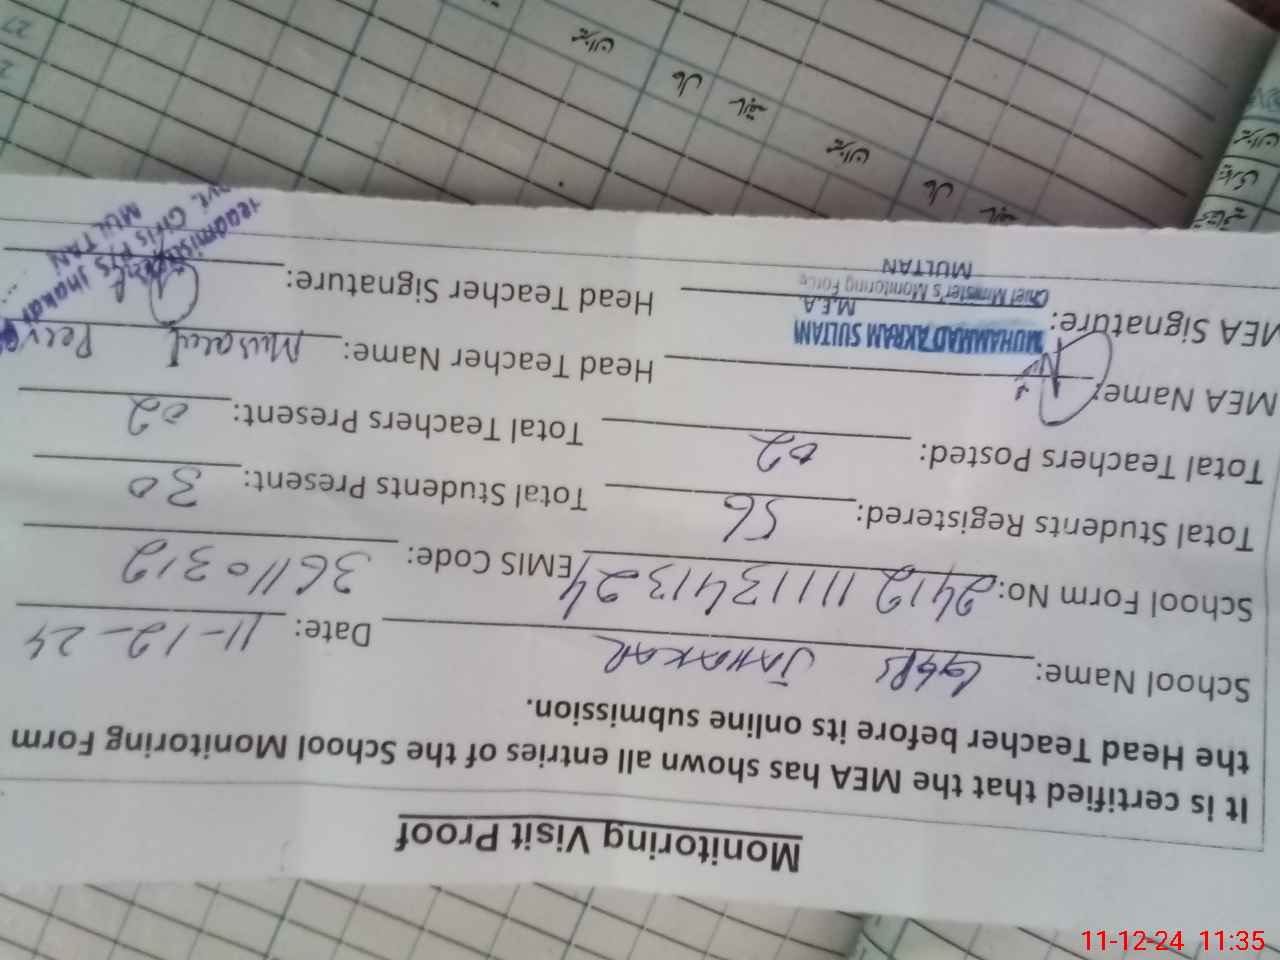 Monitoring Visit Proof
It is certified that the MEA has shown all entries of the School Monitoring Form
the Head Teacher before its online submission.
School Name: GGPS JAHAKAR Date: 11-12-24
School Form No: 2412 11113413 24 EMIS Code: 36110312
Total Students Registered: 56 Total Students Present: 30
Total Teachers Posted: 02 Total Teachers Present: 02
MEA Name: Head Teacher Name: Musarat Perv
MUHAMMAD AKRAM SULTANI
M.E.A
MEA Signature: Head Teacher Signature:
Chief Minister's Monitoring Force
MULTAN
Girls P/S Jhakar
MULTAN
میزان
حال
سابقہ
میزان
حال
سابقہ
27
2
11-12-24 11:35